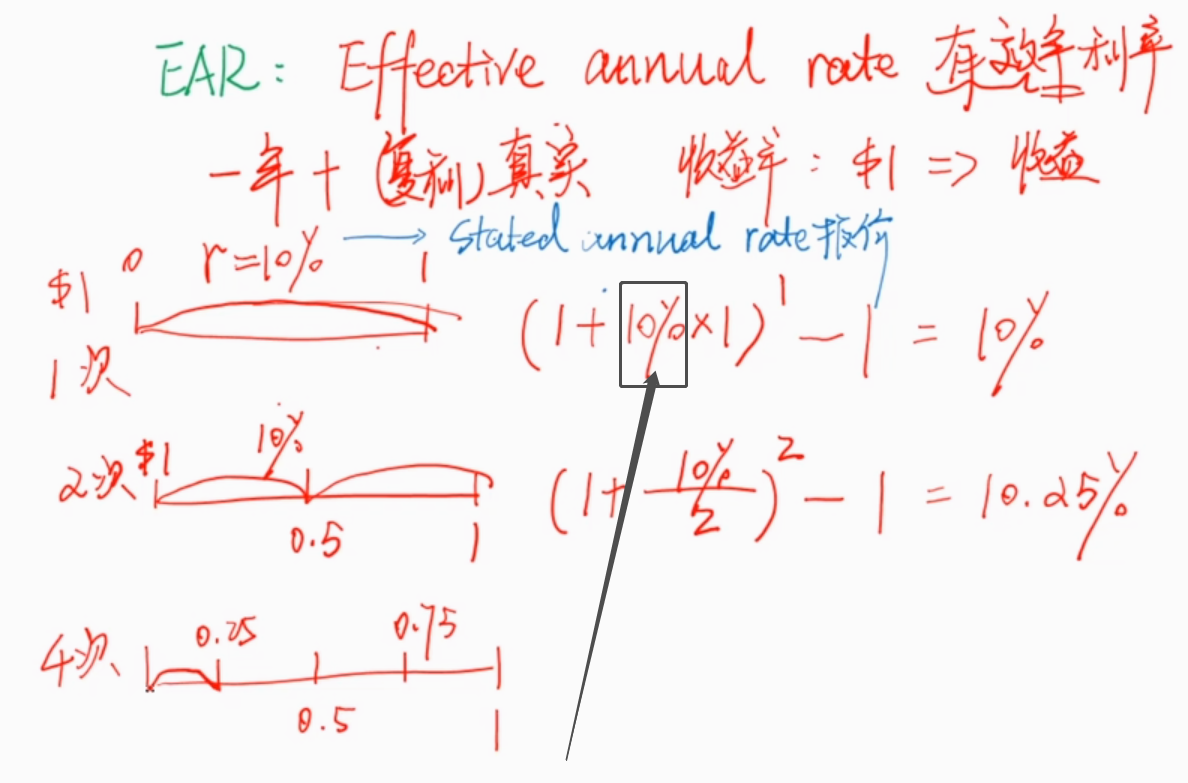 EAR: Effective annual rate 有效年利率
一年 + (复利) 真实 收益率: $1 => 收益
0 r=10% 1 → stated annual rate 报价
$1 (1+10%×1)^1 - 1 = 10%
1次
10%
2次 $1 (1+10%/2)^2 - 1 = 10.25%
0.5 1
0.25 0.75
4次
0.5 1